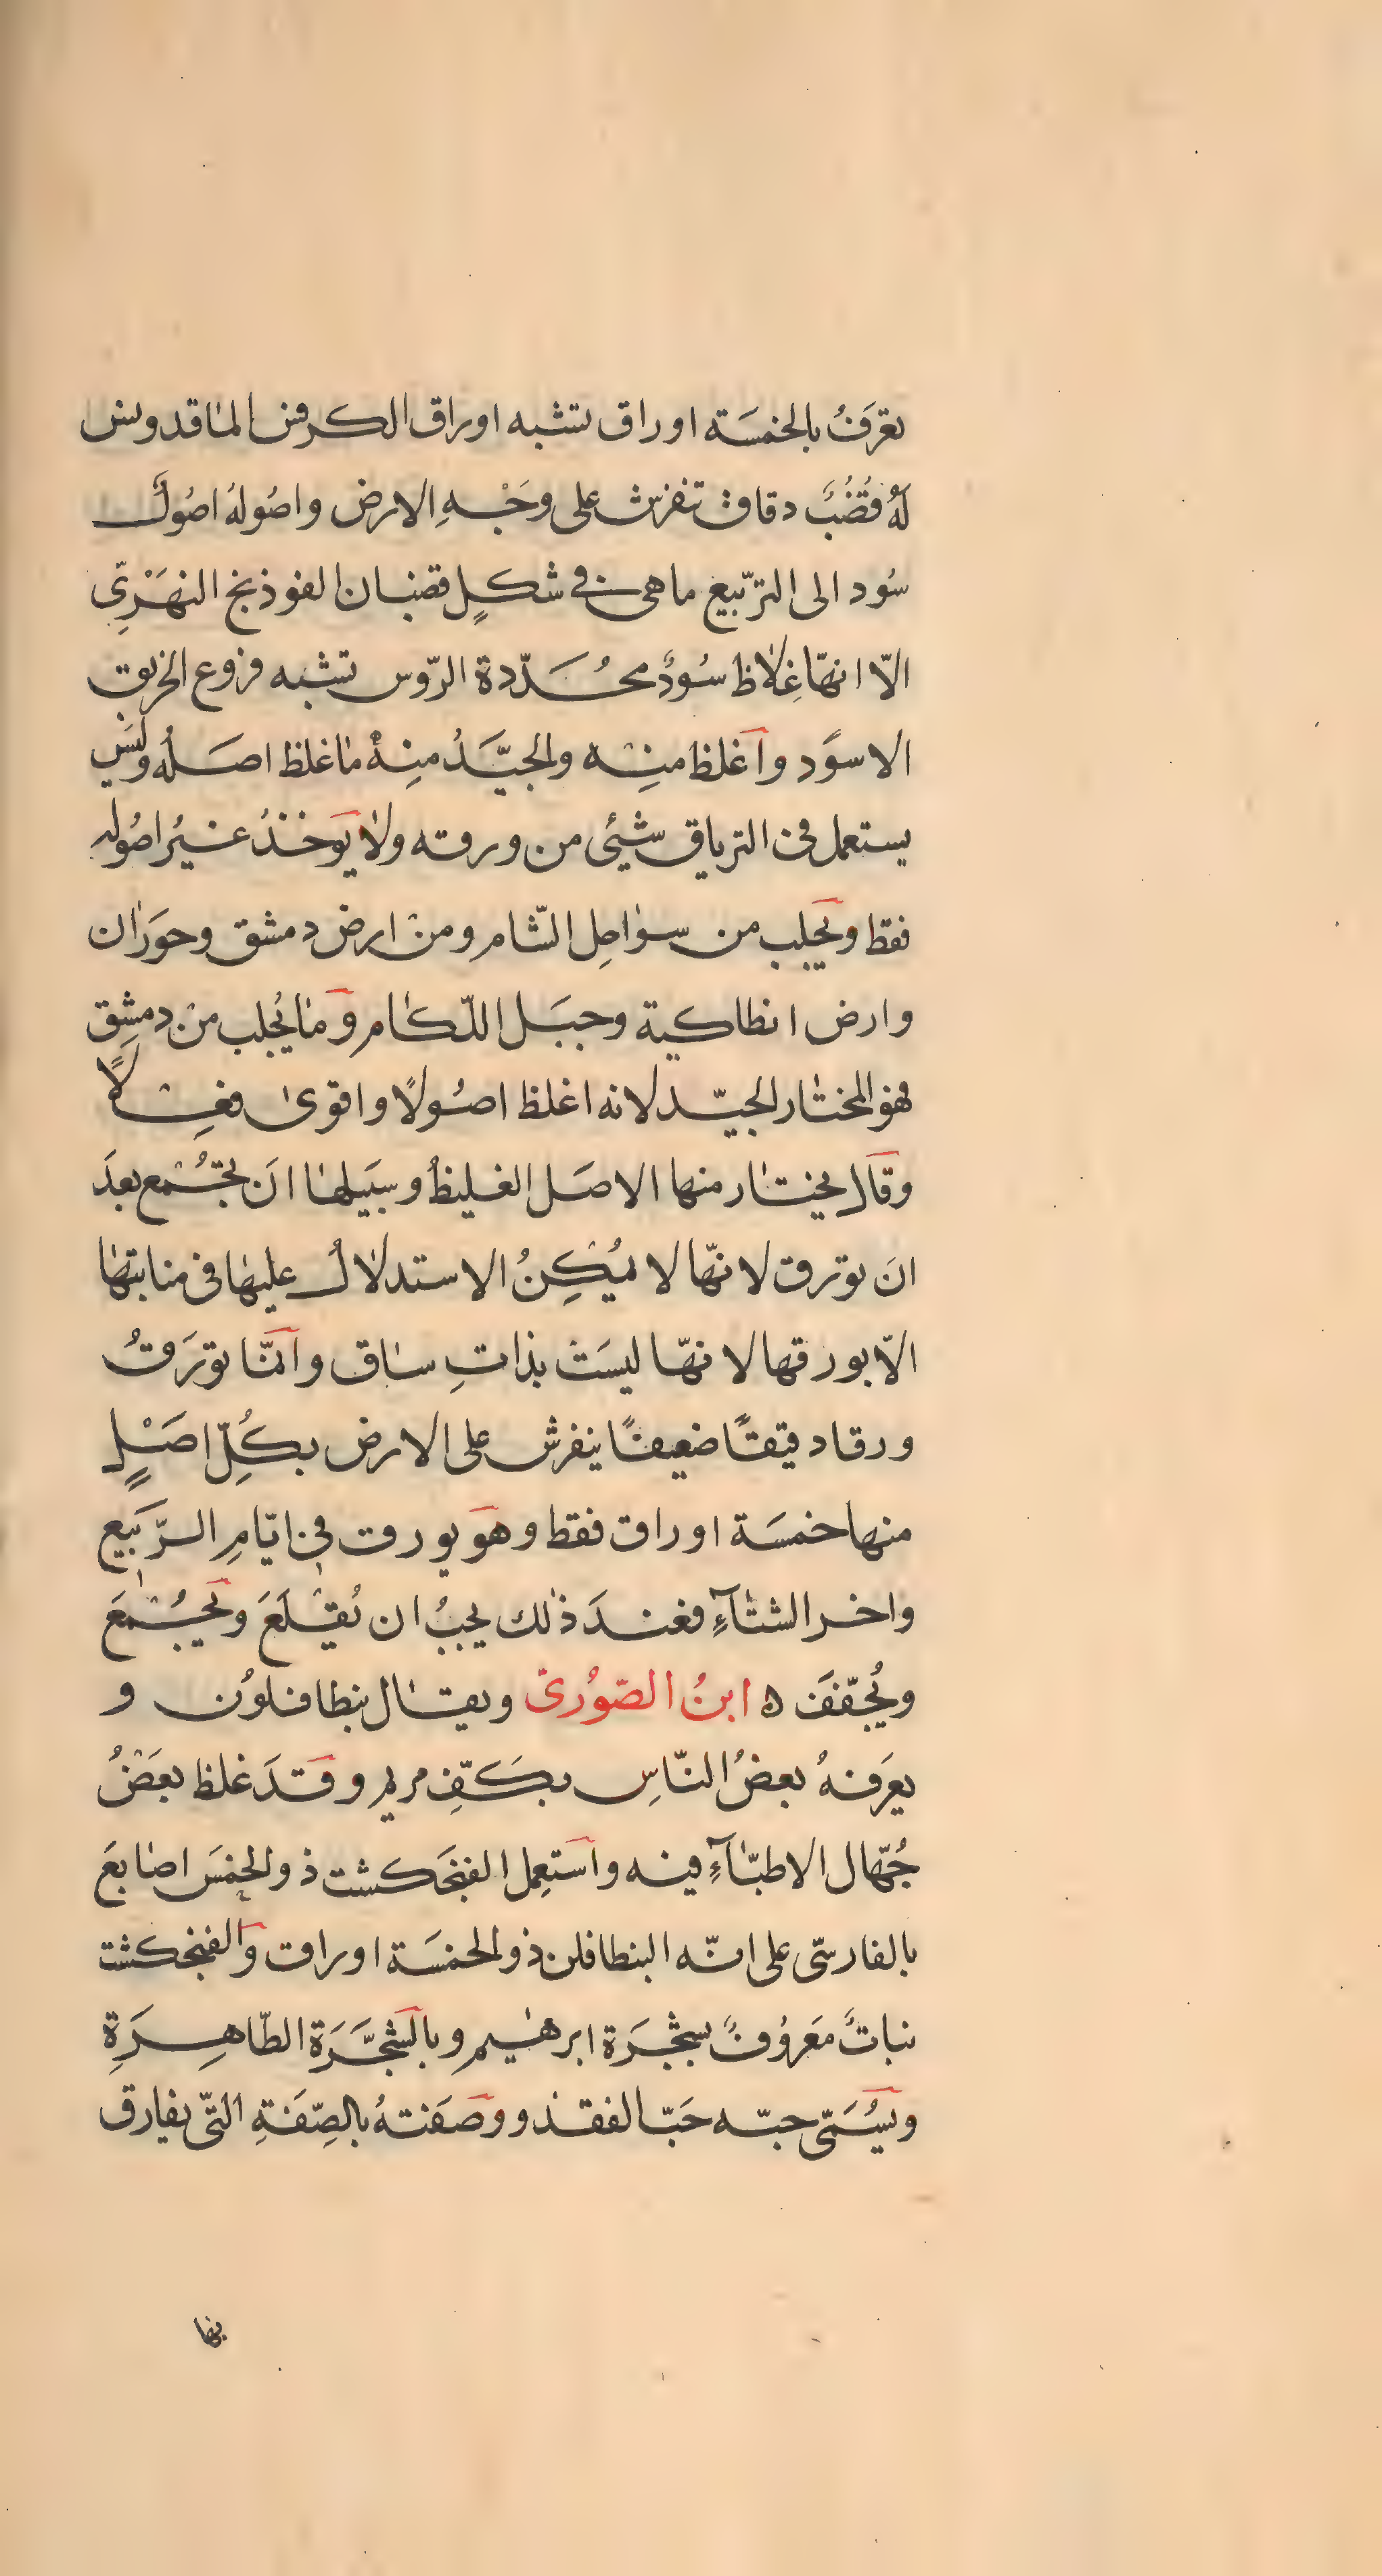 تعرَفُ بالخمسَة اوراق تشبه اوراق الكرفس الماقدونس
لَهُ قُضُبٌ دقاق تنفرش على وَجْهِ الارض واصُولهُ اصُولٌ
سُود الى التربّيع ما هى فى شكلٍ قضبان الفوذنج النهَرْىّ
الّا انهّا غِلاظ سُودٌ محُدَّدة الرّوس تشبه فروع الخربق
الاسوَد وَاغلظ منِه والجيّدُ منِهُ ماغلظ اصَلهُ وليَس
يستعمل فى الترياق شيئى من ورقه ولا يوَخذُ غيُر اصُوله
فقط وَيجلب من سواحِل الشّام ومنْ ارض دمشق وحوَران
وارض انطاكية وجبَل اللّكام وَمَا يُجلب منْ دمشِق
فهوَ المختار الجيّد لانه اغلظ اصُولًا واقوىٰ فعِلًا
وقَال يختار منها الاصَل الغليظُ وسبَيلها انَ تجتُمع بعدَ
انَ تورق لانّها لا يمُكِنُ الاستدلالُ عليهٰا فى منابتهٰا
الّا بورقها لانهّا ليسَتْ بذاتِ ساق وَانمّا تورَقُ
ورقا دقيقًا ضعيفًا ينفرش على الارض بكُلِّ اصَلٍ
منها خمسَة اوراق فقط وهوَ يورق فى ايّامِ الرّبَيع
واخر الشتٰاَءِ فعندَ ذٰلك يجبُ ان يُقْلَعَ وَيجُتمَعَ
ويُجفّفَ ه ابنُ الصّوُرىّ ويقال بنطافلوُن و
يعرَفهُ بعضُ النّاسِ بكَفِّ مريم وقَدَ غلظ بعَضُ
جُهّال الاطبّاَءِ فيه وَاستَعِمل الفنجَكشت ذو الخمسَ اصٰابعَ
بالفارسّى على انّه البنطافلن ذو الخمسَة اوراق وَالفنجكشت
نباتٌ معَروُفٌ بشجَرة ابرهٰيم وبالشجَّرَة الطّاهِرَةِ
وَيسُمَىّ حبّه حَبّ الفقد ووصَفتهُ بالصِّفَةِ التّى يفارق
بها